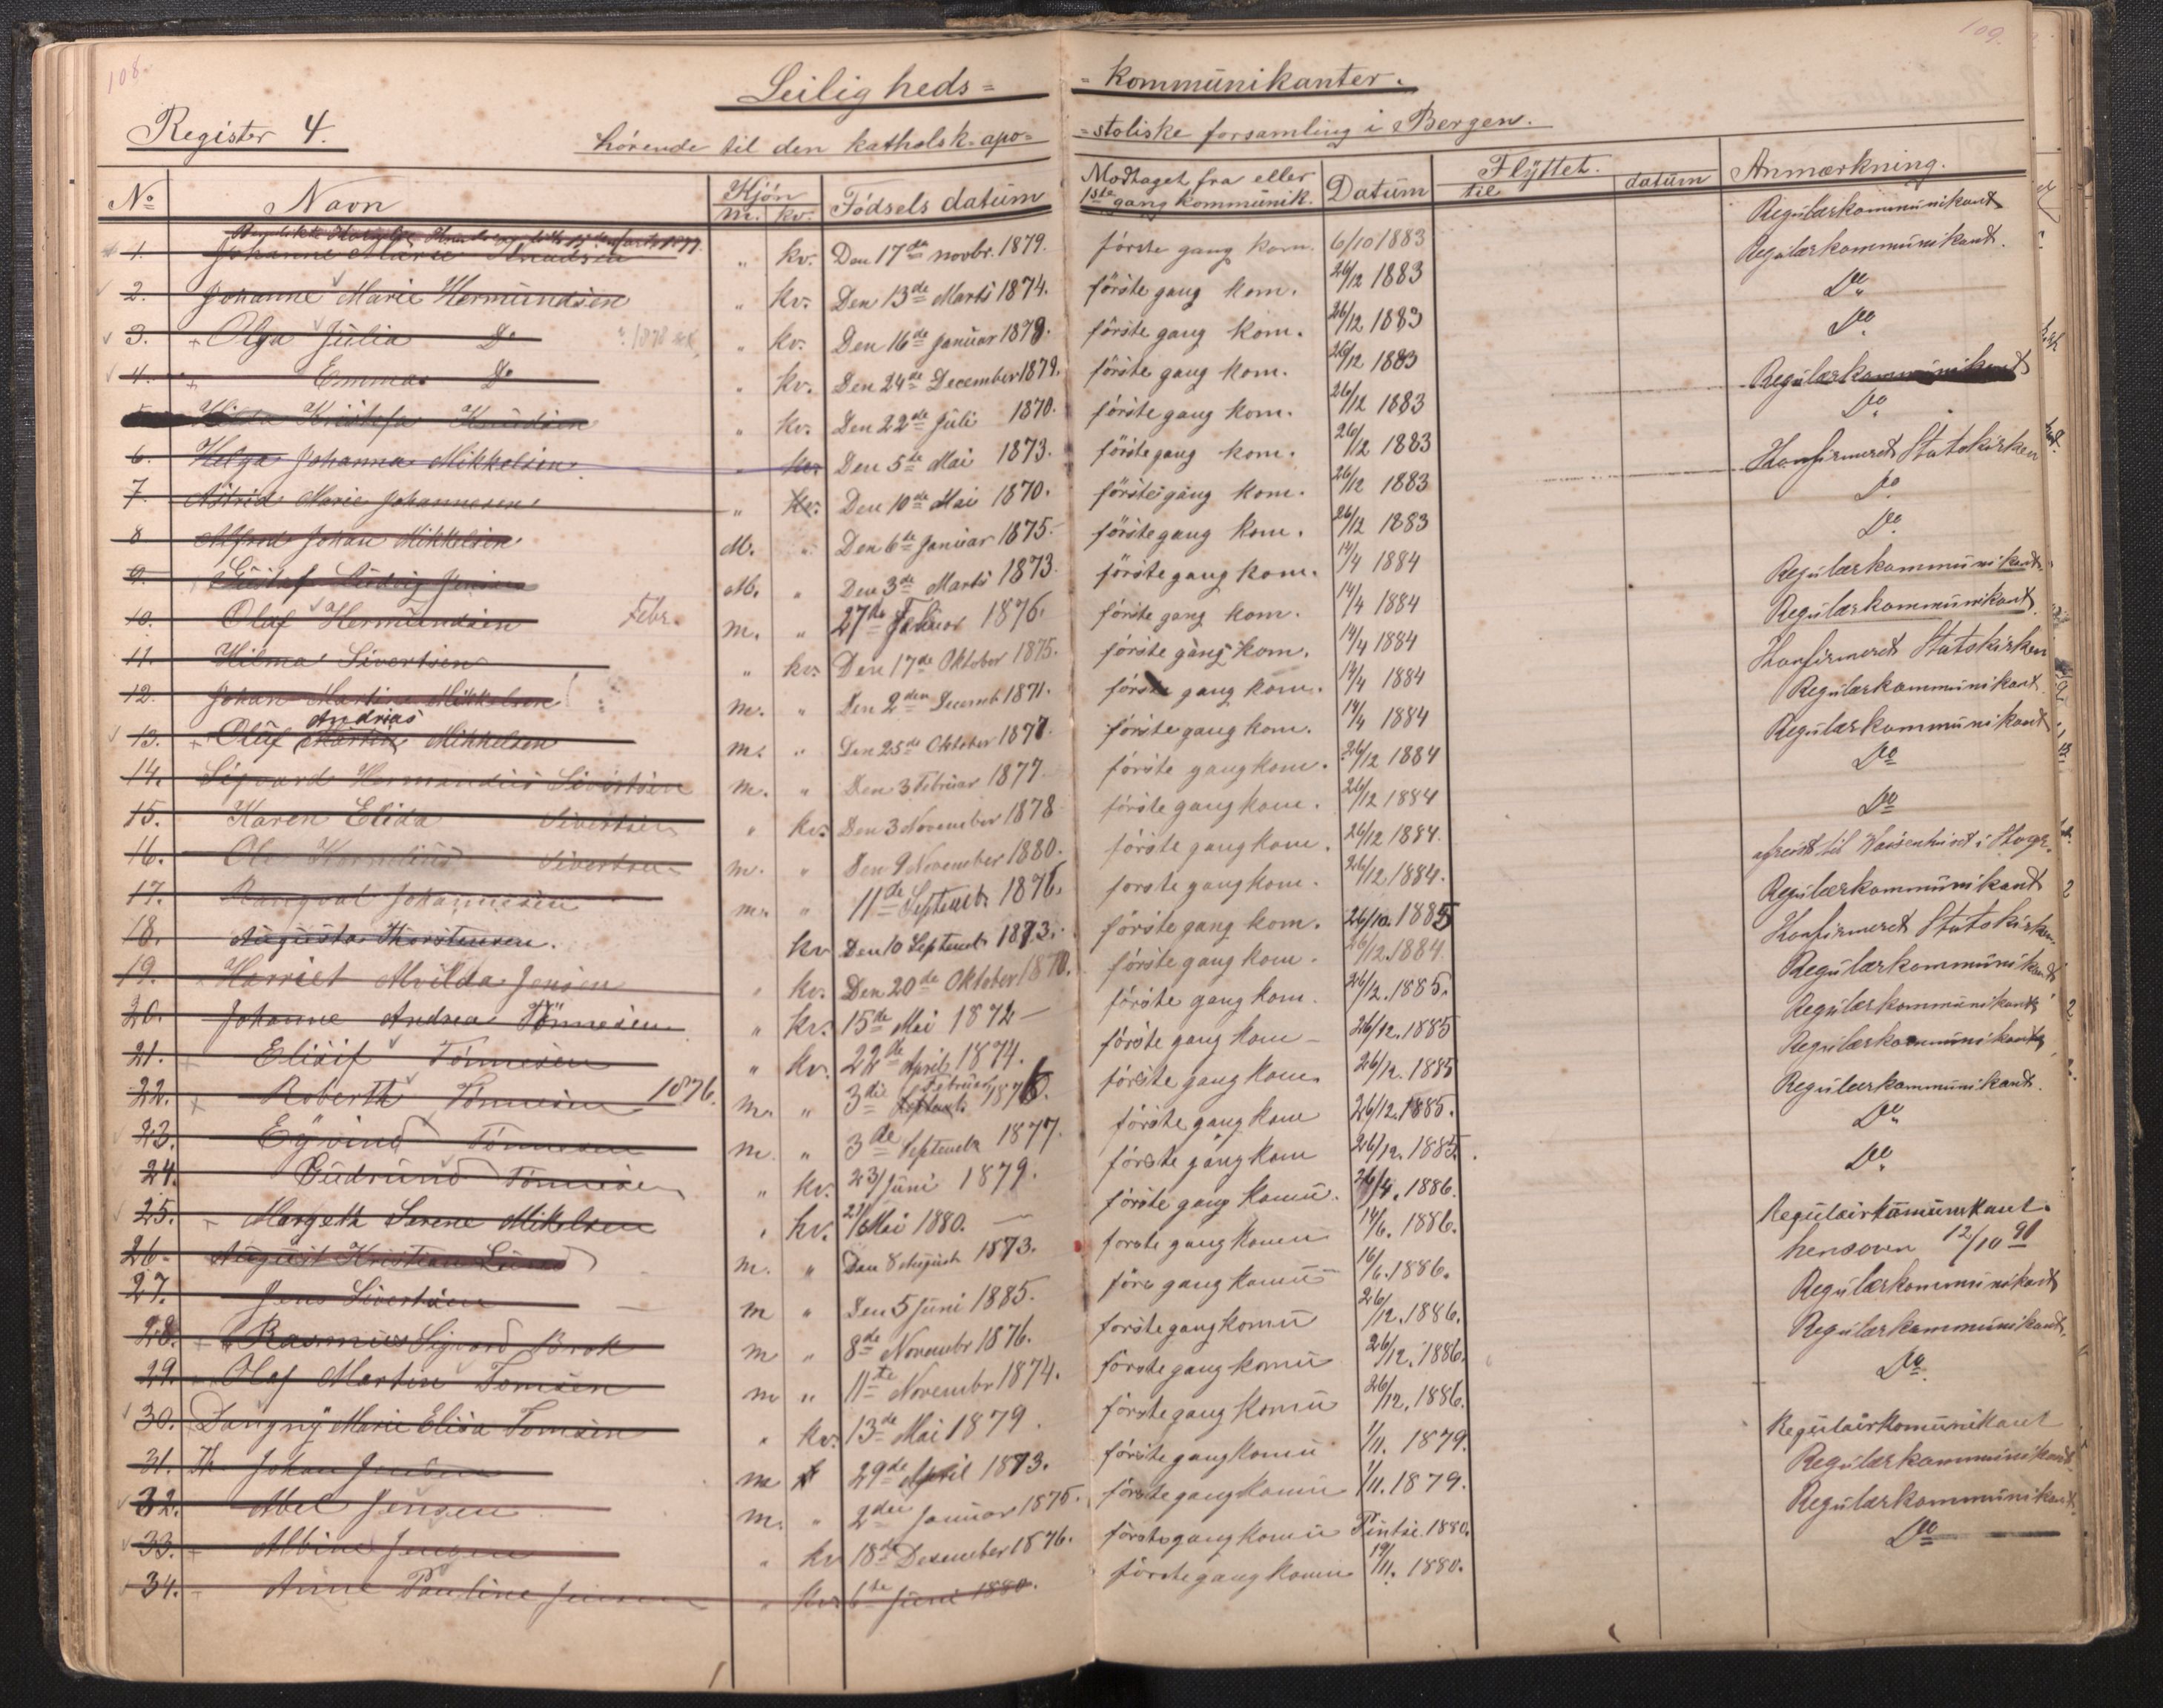 108.
109.
Leiligheds= =kommünikanter.
Register 4.
hørende til den katholsk-apo= =stoliske forsamling i Bergen.
No Navn Kjön m. kv. Födsels datüm Modtaget fra eller 1ste gang kommünik. Datüm Flÿttet. til datüm Anmærkning.
Regülærkommünikant
1. Johanne Marie Knudsen " kv. Den 17de novbr. 1879. förste gang kom. 6/10 1883 Regülærkommünikant.
2. Johanne Marie Hermündsen " kv. Den 13de Marts 1874. förste gang kom. 26/12 1883 Do
3. + Olga Jülia Do " kv. Den 16de Janüar 1878. förste gang kom. 26/12 1883 Do
4. + Emma Do " kv. Den 24de December 1879. förste gang kom. 26/12 1883 Regülærkommünikant
Kristofa Knüdsen " kv. Den 22de Jüli 1870. förste gang kom. 26/12 1883 Do
6. Helga Johanna Mikkelsen " kv. Den 5te Mai 1873. förste gang kom. 26/12 1883 Konfirmeret Statskirken
7. Astrid Marie Johannesen " kv. Den 10de Mai 1870. förste gang kom. 26/12 1883 Do
8 Alfred Johan Mikkelsen M. " Den 6te Janüar 1875. förste gang kom. 26/12 1883 Do
9. Güstaf Lüdvig Jensen M. " Den 3de Marts 1873 förste gang kom. 14/4 1884 Regülærkommünikant
10. Olaf Hermündsen Febr. m. " 27de 1876. förste gang kom. 14/4 1884 Regülærkommünikant
11. Hilma Sivertsen " kv. Den 17de Oktober 1875. förste gang kom. 14/4 1884 Konfirmeret Statskirken
12. Johan Martin Mikkelsen m. " Den 2den Decemb 1871. förste gang kom. 14/4 1884 Regülærkommünikant
Andrias
13. + Olüf Martin Mikkelsen m. " Den 25de Oktober 1877. förste gang kom. 14/4 1884 Regülærkommünikant
14. Sigvard Hermandius Sivertsen m. " Den 3 Februar 1877 förste gang kom. 26/12 1884 Do
15. Karen Elida Sivertsen " kv. Den 3 November 1878 förste gang kom. 26/12 1884 Do
16. Ole Kornelius Sivertsen m. " Den 9 November 1880. förste gang kom. 26/12 1884. afreist til Waisenhuset i
17. Rangval Johannesen m. " 11de Septemb. 1876. forste gang kom. 26/12 1884. Regülærkommünikant
18. Augüsta Thorstensen. kv Den 10 Septemb 1873. förste gang kom. 26/12. 1885 Konfirmeret Statskirken
19. Harriet Alvilda Jensen " kv. Den 20de Oktober 1870. förste gang kom. 26/12. 1884. Regülærkommünikant
20. Johanne Andrea Tönnesen " kv. 15de Mai 1872 — förste gang kom. 26/12. 1885. Regülærkommünikant
21. Elisif Tönnesen " kv. 22de April 1874. förste gang kom — 26/12. 1885 Regülærkommünikant
22. + Roberth Tönnesen 1876. m. " 3die Februar 1876. förste gang kom. 26/12. 1885 Regülærkommünikant.
23. Eÿvind Tönnesen m. " 3de Septemb 1877. förste gang kom 26/12. 1885. Do
24. Güdrün Tönnesen " kv. 23/ Jüni 1879. förste gang kom 26/12. 1885. Do
25. + Margeth Serene Mikelsen " kv. 21/ Mai 1880. — förste gang komü. 26/4. 1886. Regülairkomünikant.
26. Aügüst Kristian Lünd m. " Den 8 Aügüst 1873. förste gang komü 14/6. 1886. hensoven 12/10 91
27. Jens Sivertsen m " Den 5 Jüni 1885. före gang komü 16/6. 1886. Regülærkommünikant
28. + Rasmüs Sigvard Brok m " 8de Novembr 1876. förste gang komü 26/12. 1886. Regülærkommünikant
29. Olaf Martin Tomsen m " 11te Novembr 1874. förste gang komü 26/12. 1886. Do
30. Dangnÿ Marie Elisa Tomsen " kv. 13de Mai 1879. förste gang komü 26/12. 1886. Regülairkomünikant
31. Johan Jensen m 29de April 1873. förste gang komü 1/11. 1879. Regülærkommünikant
32. Abel Jensen m. " 2den Januar 1875. förste gang komü 1/11. 1879. Regülærkommünikant
33. + Albine Jensen " kv 18de Desember 1876. förste gang komü Pintse. 1880. Do
34. Anne Pauline Jensen " kv. 6te Jüni 1880. förste gang komü 19/11. 1880.